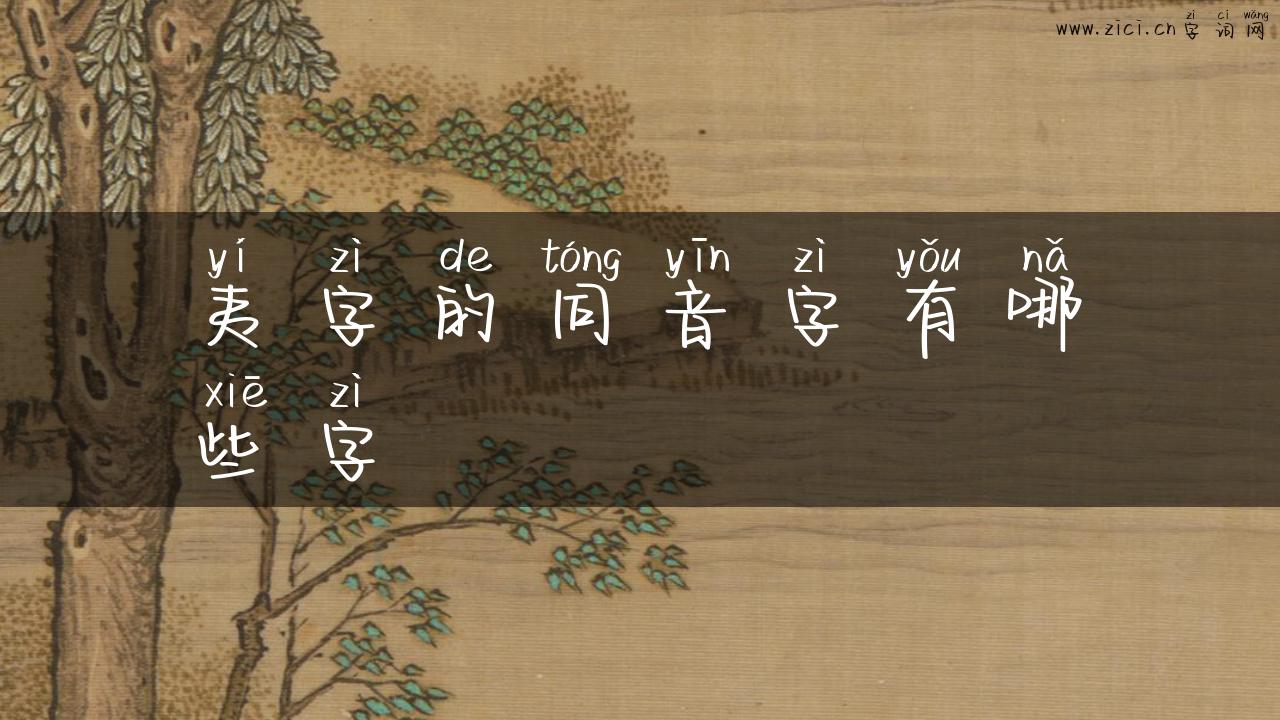 zì cí wǎng
www.zici.cn 字词网
yí zì de tóng yīn zì yǒu nǎ
夷字的同音字有哪
xiē zì
些字